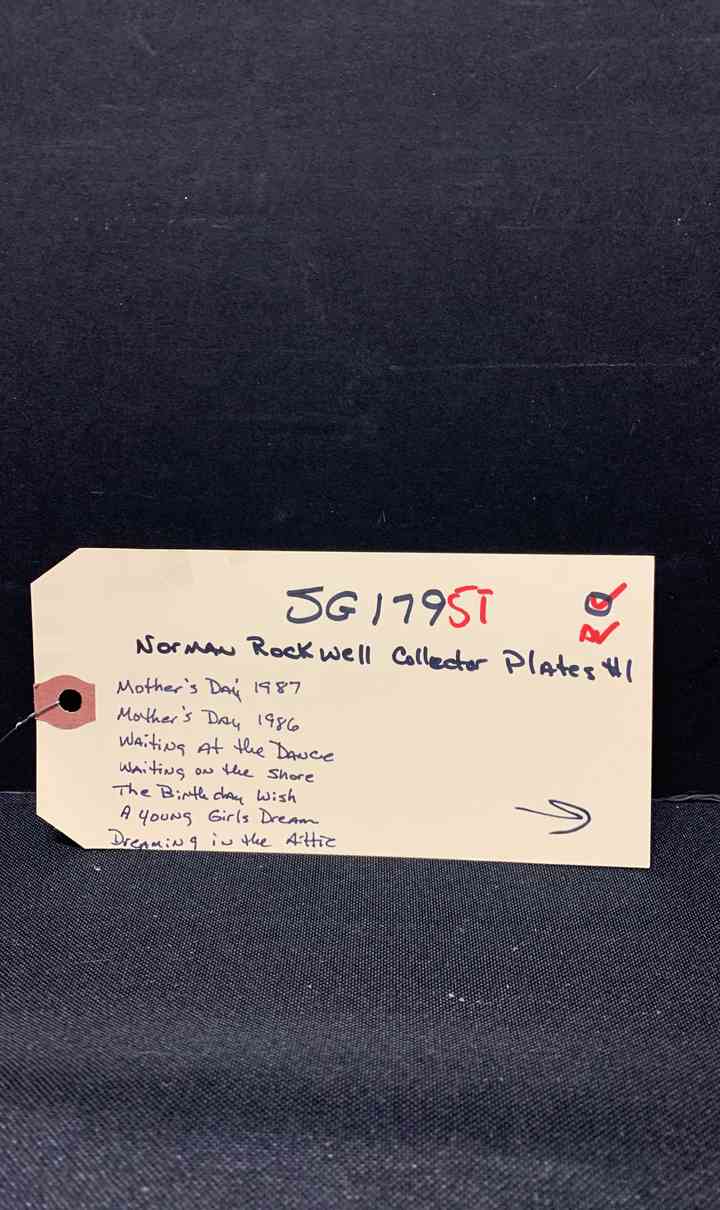 JG179ST
Norman Rockwell Collector Plates #1
Mother's Day 1987
Mother's Day 1986
Waiting At the Dance
Waiting on the Shore
The Birthday Wish
A Young Girls Dream
Dreaming in the Attic